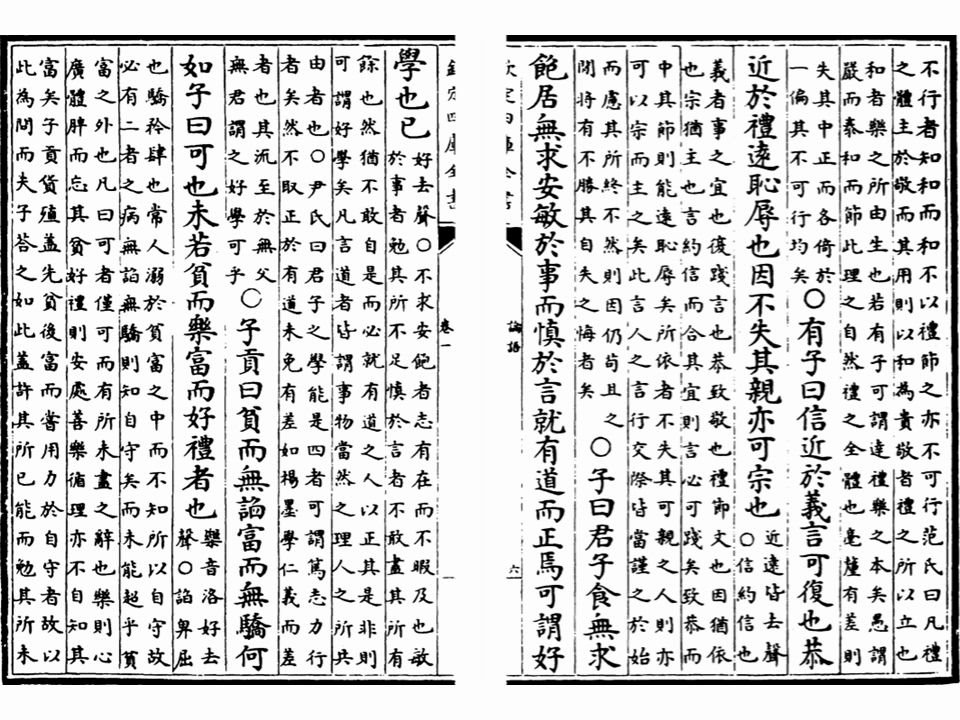 不行者知和而和不以禮節之亦不可行范氏曰凡禮
之體主於敬而其用則以和為貴敬者禮之所以立也
和者樂之所由生也若有子可謂達禮樂之本矣愚謂
嚴而泰和而節此理之自然禮之全體也毫釐有差則
失其中正而各倚於
一偏其不可行均矣
○有子曰信近於義言可復也恭
近於禮遠恥辱也因不失其親亦可宗也
近遠皆去聲
○信約信也
義者事之宜也復踐言也恭致敬也禮節文也因猶依
也宗猶主也言約信而合其宜則言必可踐矣致恭而
中其節則能遠恥辱矣所依者不失其可親之人則亦
可以宗而主之矣此言人之言行交際皆當謹之於始
而慮其所終不然則因仍苟且之
閒將有不勝其自失之悔者矣
○子曰君子食無求
飽居無求安敏於事而慎於言就有道而正焉可謂好
欽定四庫全書
論語
六
欽定四庫全書
卷一
學也已
好去聲○不求安飽者志有在而不暇及也敏
於事者勉其所不足慎於言者不敢盡其所有
餘也然猶不敢自是而必就有道之人以正其是非則
可謂好學矣凡言道者皆謂事物當然之理人之所共
由者也○尹氏曰君子之學能是四者可謂篤志力行
者矣然不取正於有道未免有差如楊墨學仁義而差
者也其流至於無父
無君謂之好學可乎
○子貢曰貧而無諂富而無驕何
如子曰可也未若貧而樂富而好禮者也
樂音洛好去
聲○諂卑屈
也驕矜肆也常人溺於貧富之中而不知所以自守故
必有二者之病無諂無驕則知自守矣而未能超乎貧
富之外也凡曰可者僅可而有所未盡之辭也樂則心
廣體胖而忘其貧好禮則安處善樂循理亦不自知其
富矣子貢貨殖蓋先貧後富而嘗用力於自守者故以
此為問而夫子答之如此蓋許其所已能而勉其所未